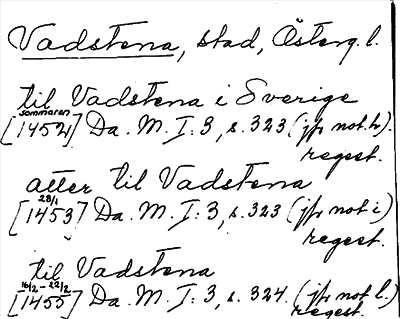 Vadstena, stad, Österg.l.
til Vadstena i Sverige
sommaren
[1452] Da. M. I:3, s. 323 (jfr not h).
regest.
atter til Vadstena
28/1
[1453] Da. M. I:3, s. 323 (jfr not i)
regest.
til Vadstena
16/2-22/2
[1455] Da. M. I:3, s. 324. (jfr not l.)
regest.